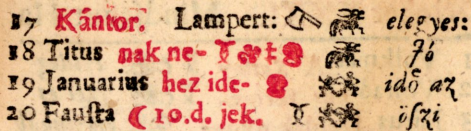 17 Kántor. Lampert: elegyes:
18 Titus nak ne- jó
19 Januarius hez ide- idő az
20 Fausta ☾ 10.d. jek. öſzi